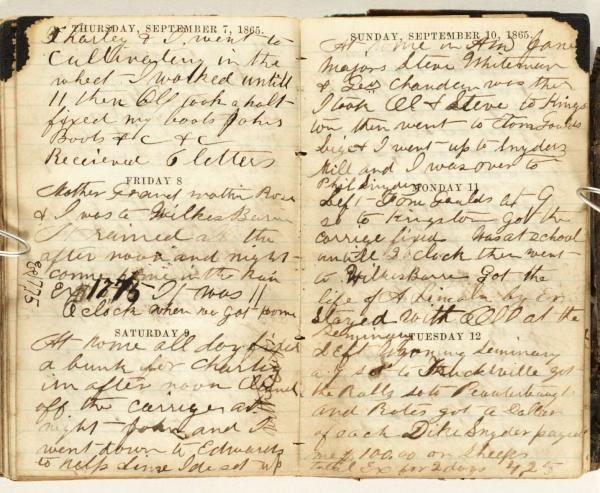 THURSDAY, SEPTEMBER 7, 1865.
Charley & I went to
Cultivateing in the
wheet I worked untill
11 then Oll took a halt
fixed my boots Johns
Boots & c & c
Recieved 6 letters
FRIDAY 8
Mother & and mother Rose
& I was to Wilkes Barre
It rained all the
after noon and night
come home in the Rain
Ex 12.75 It was 11
O clock when we got home
SATURDAY 9
At home all day fixed
a bunk for Charley
in after noon
off the carrige at
night John and I
went down to Edwards
to help
88775
SUNDAY, SEPTEMBER 10, 1865.
At home in A.M. Jane
Majors Steve Whiteman
& Chanden was then
I took Oll & Steve to Kings
ton then went to Tom Goulds
& I went up to Snyders
Mill and I was over to
Phil Snyders
MONDAY 11
Left Tom Goulds at 9
so to Kingston got the
carrige fixed was at school
untill 3 clock then went
to Wilkes Barre got the
life of A Lincoln by
Stayed with Oll at the
Seminary
TUESDAY 12
Left Wyoming Seminary
to Truckville got
the Rolls
and got a
of each Dike Snyder payed
me $100.00 on Sheeps
total Ex for 2 days 4,25